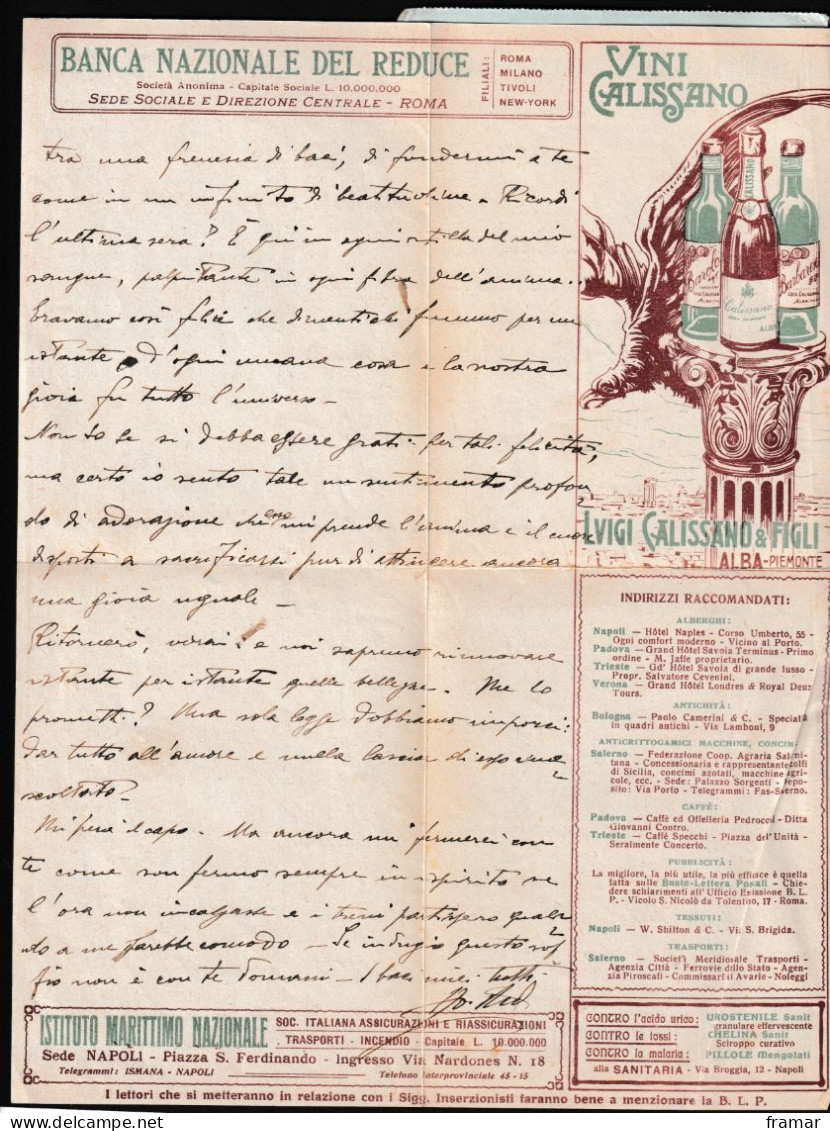 BANCA NAZIONALE DEL REDUCE
Società Anonima - Capitale Sociale L. 10.000.000
SEDE SOCIALE E DIREZIONE CENTRALE - ROMA
FILIALI:
ROMA
MILANO
TIVOLI
NEW-YORK
tra una frenesia di baci, di fondermi a te
come in un infinito di beatitudine. Ricordi
l'ultima sera? È qui in ogni stilla del mio
sangue, palpitante in ogni fibra dell'anima..
Eravamo così felici che dimentichi fummo per un
istante d'ogni umana cosa e la nostra
gioia fu tutto l'universo -
Non so se si debba essere grati per tali felicità,
ma certo io sento tale un sentimento profon
do di adorazione che mi prende l'anima e il cuore
disposti a sacrificarsi pur di attingere ancora
una gioia uguale -
Ritornerò, verrai e noi sapremo rinnovare
istante per istante quelle bellezze. Me lo
prometti? Una sola legge dobbiamo imporci:
dar tutto all'amore e nulla lasciar di esso ina
scoltato.
Mi però il capo. Ma ancora mi fermerei con
te come son fermo sempre in ispirito se
l'ora non incalzasse e i treni partissero quan
do a me farebbe comodo - Se indugio questo
fio non è con te domani - I baci miei tutti
VINI
CALISSANO
CALISSANO
Barolo
Calissano
ALBA
Barbaresco
LUIGI CALISSANO & FIGLI
ALBA-PIEMONTE
INDIRIZZI RACCOMANDATI:
ALBERGHI:
Napoli — Hôtel Naples - Corso Umberto, 55 -
Ogni comfort moderno - Vicino al Porto.
Padova — Grand Hôtel Savoia Terminus - Primo
ordine - M. Jaffe proprietario.
Trieste — Gd' Hôtel Savoia di grande lusso -
Propr. Salvatore Cevenini.
Verona — Grand Hôtel Londres & Royal Deux
Tours.
ANTICHITÀ:
Bologna — Paolo Camerini & C. - Special
in quadri antichi - Via Lamboni, 9
ANTICRITTOGAMICI MACCHINE, CONCIM-
Salerno — Federazione Coop. Agraria Salerni-
tana - Concessionaria e rappresentante zolfi
di Sicilia, concimi azotati, macchine agri-
cole, ecc. - Sede: Palazzo Sorgenti - Depo-
sito: Via Porto - Telegrammi: Fas-Salerno.
CAFFÈ:
Padova — Caffè ed Offelleria Pedrocchi - Ditta
Giovanni Contro.
Trieste — Caffè Specchi - Piazza del'Unità -
Seralmente Concerto.
PUBBLICITÀ:
La migliore, la più utile, la più efficace è quella
fatta sulle Buste-Lettera Postali - Chie-
dere schiarimenti all'Ufficio Emissione B. L.
P. - Vicolo S. Nicolò da Tolentino, 17 - Roma.
TESSUTI:
Napoli — W. Shilton & C. - Via S. Brigida.
TRASPORTI:
Salerno — Società Meridionale Trasporti -
Agenzia Città - Ferrovie dello Stato - Agen-
zia Piroscafi - Commissari di Avarie - Noleggi
ISTITUTO MARITTIMO NAZIONALE
SOC. ITALIANA ASSICURAZIONI E RIASSICURAZIONI
TRASPORTI - INCENDIO - Capitale L. 10.000.000
Sede NAPOLI - Piazza S. Ferdinando - Ingresso Via Nardones N. 18
Telegrammi: ISMANA - NAPOLI
Telefono interprovinciale 45 - 15
CONTRO l'acido urico: UROSTENILE Sanit
granulare effervescente
CONTRO la tosse: CHELINA Sanit
Sciroppo curativo
CONTRO la malaria: PILLOLE Mengolati
alla SANITARIA - Via Broggia, 12 - Napoli
I lettori che si metteranno in relazione con i Sigg. Inserzionisti faranno bene a menzionare la B. L. P.
framar
Delcampe.net